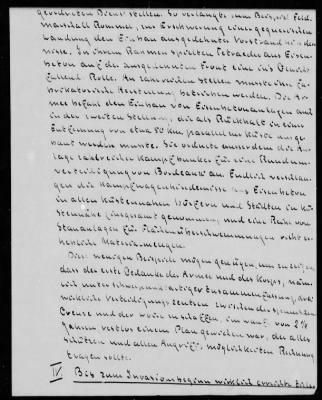 geordneten Dienst stellen. So verlangte zum Beispiel Feld-
marschall Rommel, zur Erschwerung einer gegnerischen
Landung den Einbau ausgedehnter Vorstrandhindernisse
nisse. In ihrem Rahmen spielten Tetraeder aus Eisen-
beton auf die ausgedehnten Front eine ins Gewicht
fallende Rolle. An zahlreichen Stellen musste ihre fa-
brikatorische Herstellung betrieben werden. Die Ar-
mee befahl den Einbau von Eisenbetonanlagen auch
in der zweiten Stellung, die als Rückhalt in einer
Entfernung von etwa km parallel zur Küste ausge-
baut werden musste. Sie ordnete ausserdem die An-
lage zahlreicher Kampfbunker für eine Rundum-
verteidigung von Bordeaux an. Endlich verschlan-
gen die Kampfwagenhindernisse aus Eisenbeton
in allen küstennahen Dörfern und Städten in Kü-
stennähe insgesamt genommen und eine Reihe von
Stauanlagen für Flächenüberschwemmungen recht er-
hebliche Materialmengen.
Diese wenigen Beispiele mögen genügen, um zu zeigen,
dass der erste Gedanke der Armee und des Korps, näm-
lich unter schwerpunktartiger Zusammenfassung, drei
wirkliche Verteidigungszentren zwischen der spanischen
Grenze und der Loire zu schaffen, im Lauf von 2 ¾
Jahren restlos einem Plan gewichen war, der alles
schützen und allen Angriffsmöglichkeiten Rechnung
tragen sollte.
IV. Bis zum Invasionsbeginn wirklich erreichte